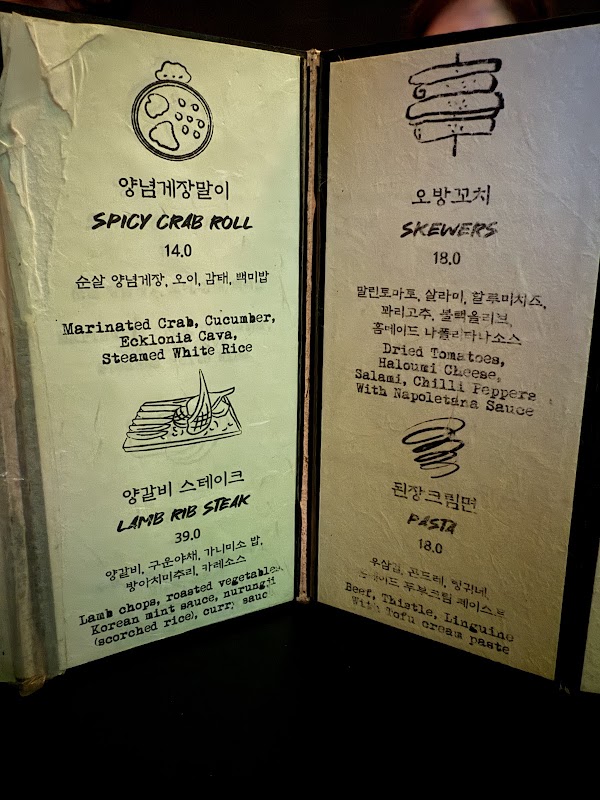 양념게장말이
SPICY CRAB ROLL
14.0
순살 양념게장, 오이, 감태, 백미밥
Marinated Crab, Cucumber,
Ecklonia Cava,
Steamed White Rice
양갈비 스테이크
LAMB RIB STEAK
39.0
양갈비, 구운야채, 가니미소 밥,
방아치미추리, 카레소스
Lamb chops, roasted vegetables,
Korean mint sauce, nurungji
(scorched rice), curry sauc
오방꼬치
SKEWERS
18.0
말린토마토, 살라미, 할루미치즈,
꽈리고추, 블랙올리브,
홈메이드 나폴리타나소스
Dried Tomatoes,
Haloumi Cheese,
Salami, Chilli Peppers
With Napoletana Sauce
된장크림면
PASTA
18.0
우삼겹, 곤드레, 링귀네,
홈메이드 두부크림 페이스트
Beef, Thistle, Linguine
With Tofu cream paste